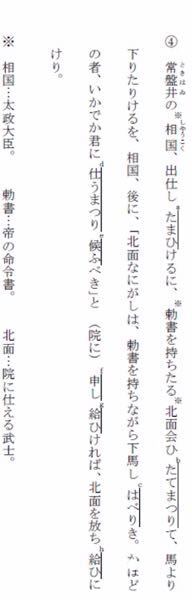 ④　常盤井の※相国、出仕したまひけるに、※勅書を持ちたる※北面会ひたてまつりて、馬より
ときはゐ
しやうこく
a
b
下りたりけるを、相国、後に、「北面なにがしは、勅書を持ちながら下馬しはべりき。かほど
c
の者、いかでか君に仕うまつり候ふべき」と（院に）申し給ひければ、北面を放ち給ひに
d
e
f
g
h
けり。
※　相国…太政大臣。　勅書…帝の命令書。　北面…院に仕える武士。